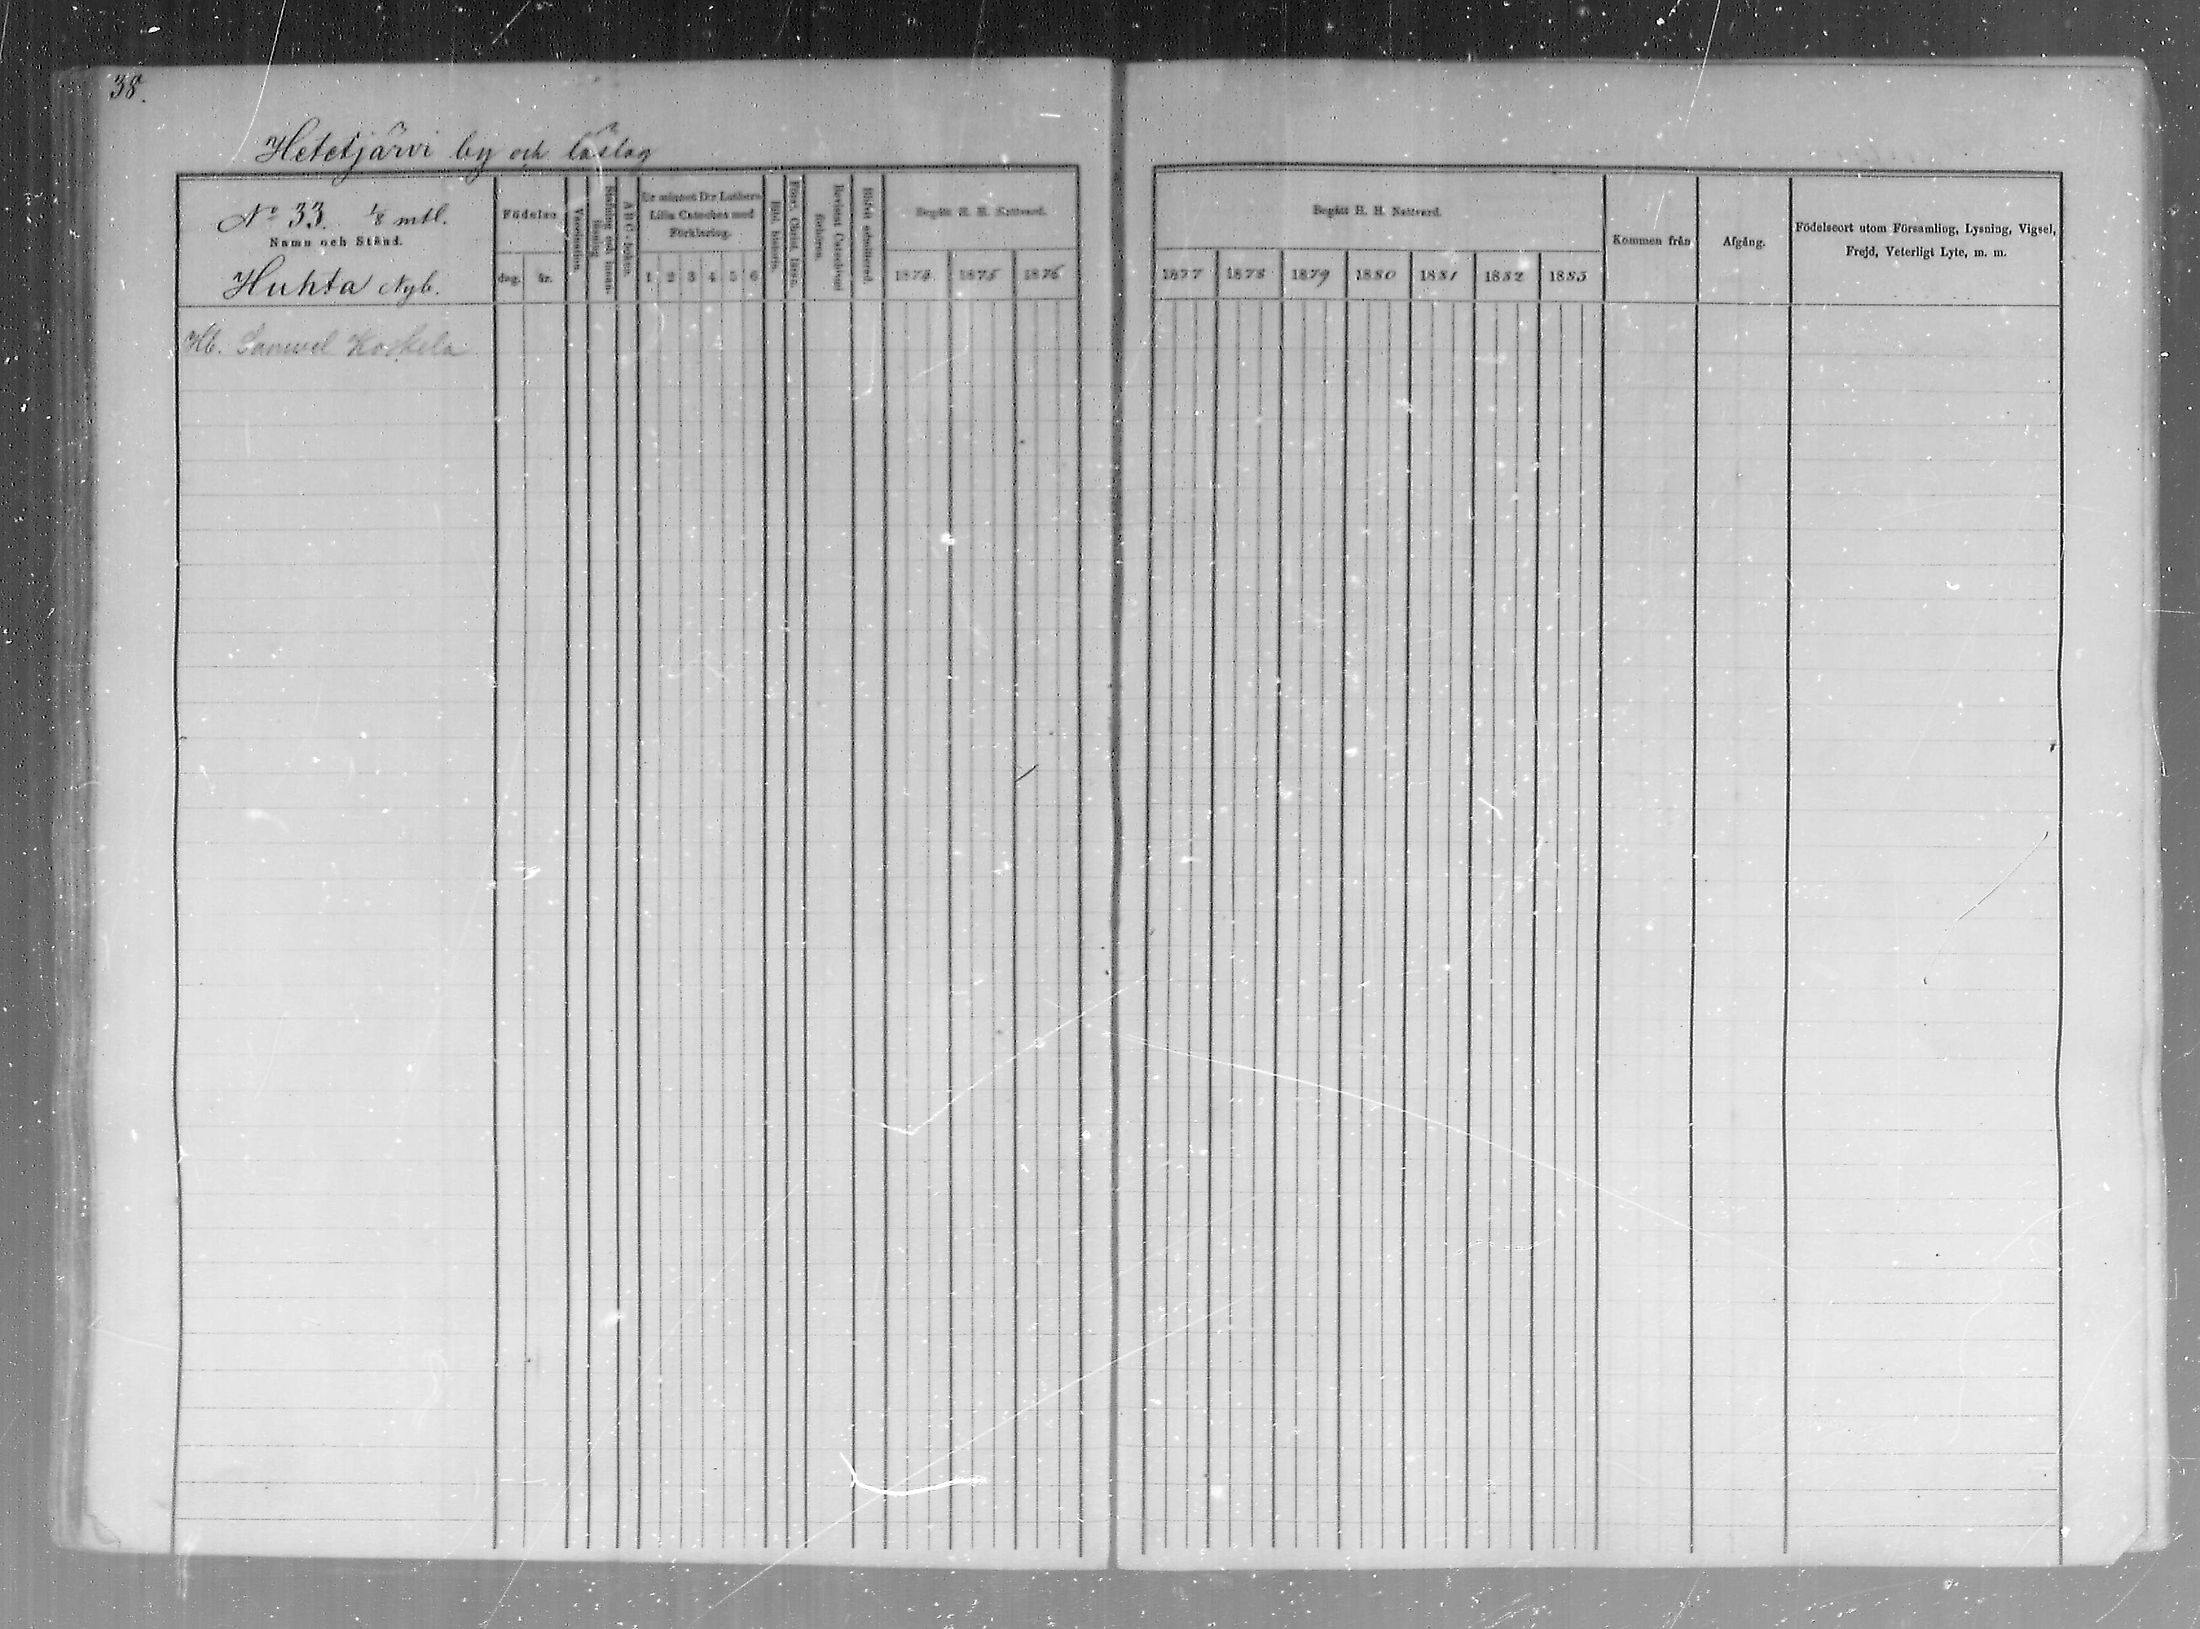 38.
Hetetjärvi by och låslag
No 33. 1/8 mtl.
Namn och Stånd.
Huhta Nyb.
Födelse
dag. år.
Vaccination.
ABC-boken.
Ur minnet D:r Luthers
Lilla Cateches med
Förklaring.
1 2 3 4 5 6
Bibl. historia.
Begått H. H. Nattvard.
1874 1875 1876
Begått H. H. Nattvard.
1877 1878 1879 1880 1881 1882 1883
Kommen från
Afgång.
Födelseort utom Församling, Lysning, Vigsel,
Frejd, Veterligt Lyte, m. m.
Hb. Samuel Koskela